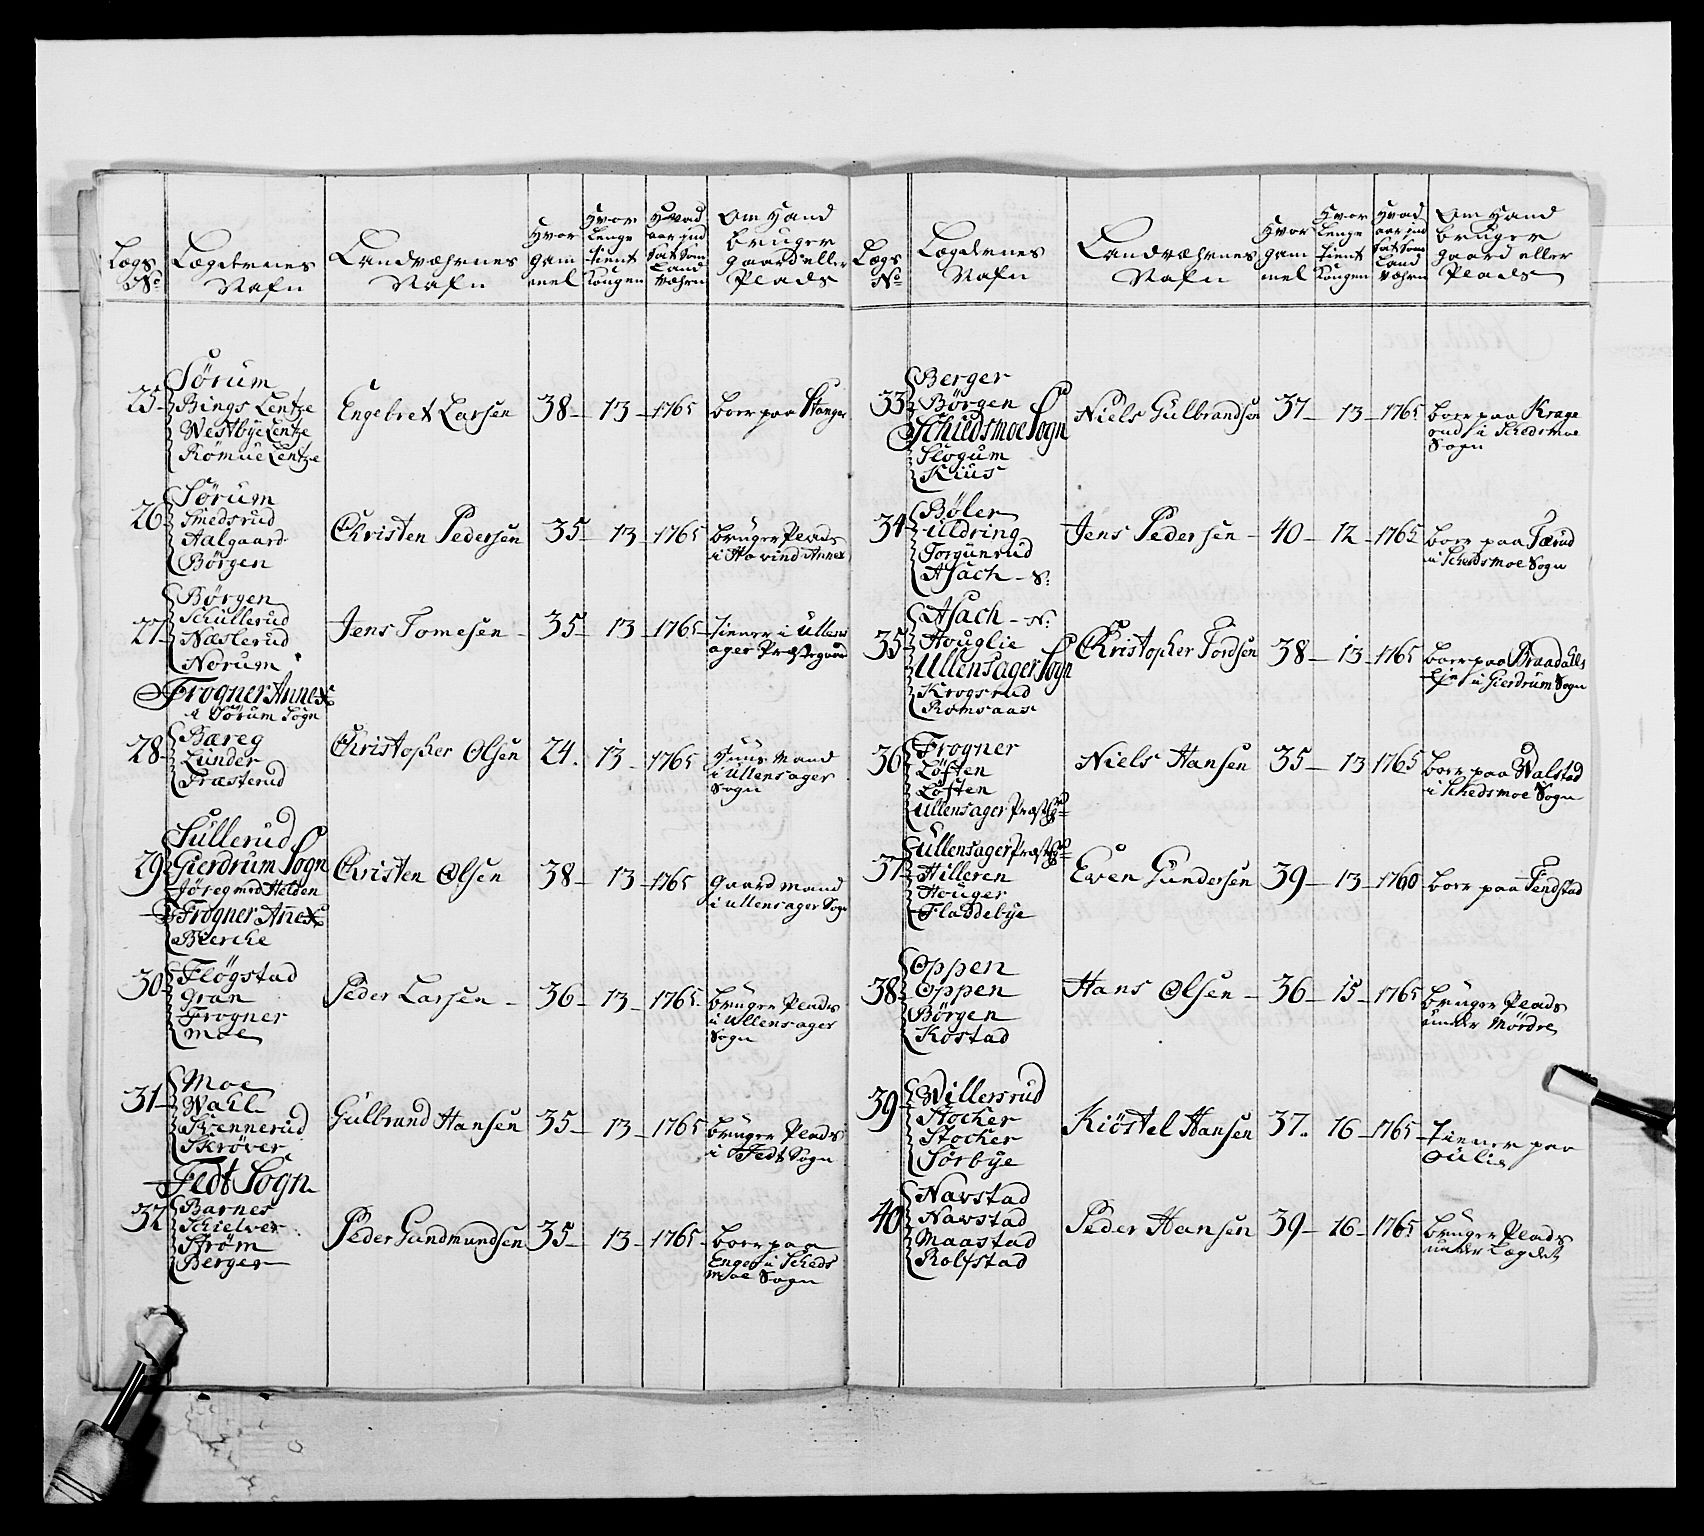 Lægs No
Lægdernes Nafn
Landværnes Nafn
Hvor gam mel
Hvor Lenge tient Kongen
Hvad aar ind sat som Land værn
Om Hand bruger gaard eller Plads
25
Sørum
Bings Lentze
Westbye Lentze
Romue Lentze
Engebret Larsen 38 13 1765
boer paa Stanger
26
Sørum
Smedsrud
Aalgaard
Børgen
Christen Pedersen 35 13 1765
bruger Plads
i Hovind Annex
27
Børgen
Schullerud
Næslerud
Norum
Jens Tomesen 35 13 1765
tiener i Ullens
ager Præstegaard
Frogner Annex
a Sørum Sogn
28
Bæreg
Lunder
Træsterud
Christopher Olsen 24 13 1765
Huus Mand
i Ullensager
Sogn
29
Sullerud
Gierdrum Sogn
med
Frogner Añex
Bierche
Christen Olsen 38 13 1765
gaard mand
i Ullensager Sogn
30
Fløgstad
Gran
Frogner
Moe
Peder Larsen 36 13 1765
bruger Plads
i Ullensager
Sogn
31
Moe
Wahl
Svennerud
Skrøver
Gulbrand Hansen 35 13 1765
bruger Plads
i Fedt Sogn
Fedt Sogn
32
Barnes
Schielver
Strøm
Berger
Peder Gundmundsen 35 13 1765
boer paa
Enger i Scheds
moe Sogn
Lægs No
Lægdernes Nafn
Landværnes Nafn
Hvor gam mel
Hvor Lenge tient Kongen
Hvad aar ind sat som Land værn
Om Hand bruger gaard eller Plads
33
Berger
Børgen
Schedsmoe Sogn
Slogum
Kius
Niels Gulbrandsen 37 13 1765
boer paa Krage
rud i Schedsmoe
Sogn
34
Bøler
Illdring
Torgunrud
Asach - S:
Jens Pedersen 40 12 1765
boer paa Tærud
i Schedsmoe Sogn
35
Asach - N:
Houglie
Ullensager Sogn
Krogsrud
Romsaas
Christopher Tordsen 38 13 1765
boer paa Braadalls
Eje i Gierdrum Sogn
36
Frogner
Løften
Løften
Ullensager Præstg
Niels Hansen 35 13 1765
boer paa Walstad
i Schedsmoe Sogn
37
Ullensager Præstg
Hilleren
Houger
Fladdebye
Even Gundersen 39 13 1760
boer paa Tendstad
38
Oppen
Oppen
Børgen
Kostad
Hans Olsen 36 15 1765
bruger Plads
under Mördre
39
Willersrud
Stocher
Stocher
Sørbye
Kiöstel Hansen 37 16 1765
Tiener paa
Julie
40
Navstad
Navstad
Maastad
Rolfstad
Peder Hansen 39 16 1765
bruger Plads
under Lægdet